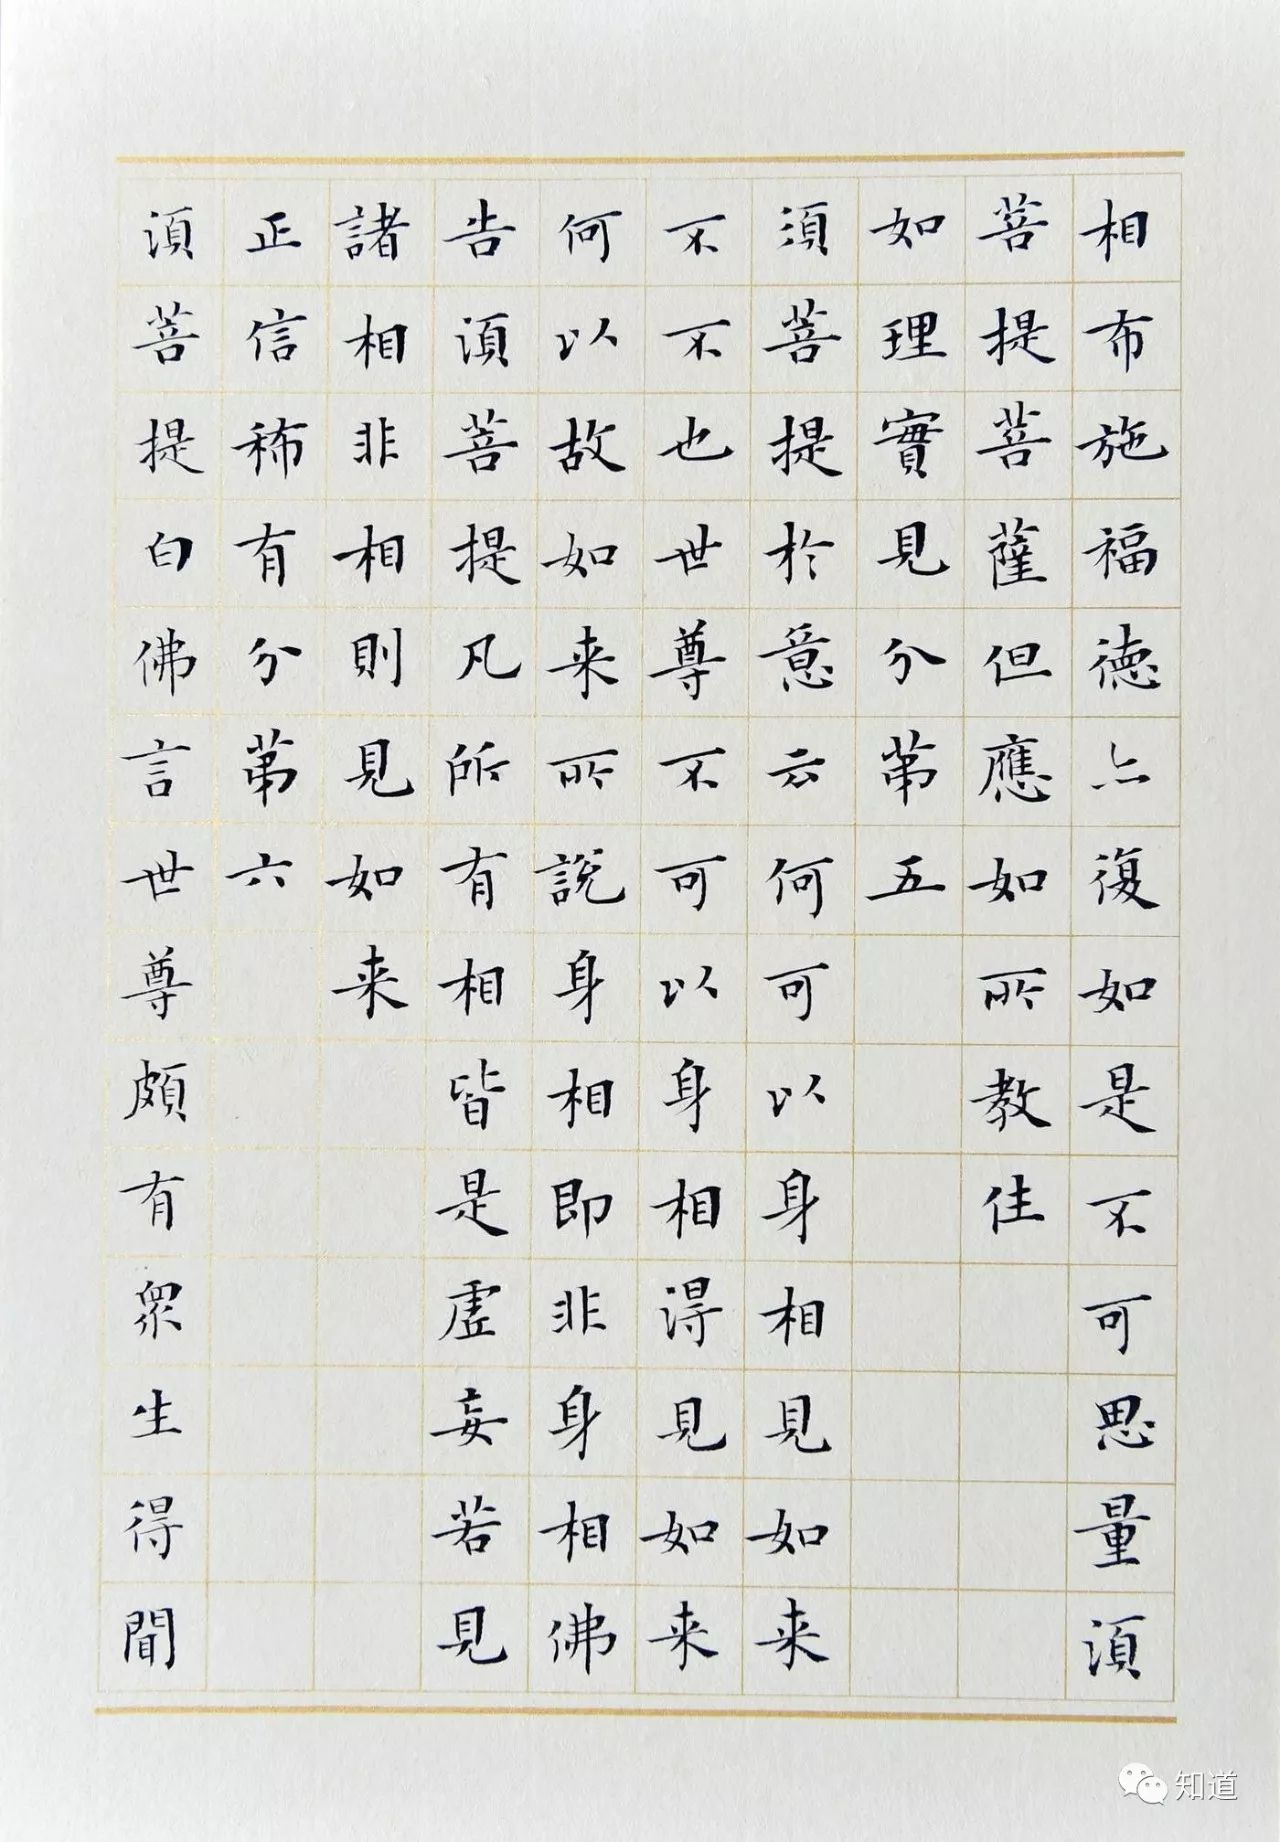 相布施福德亦復如是不可思量須
菩提菩薩但應如所教住
如理實見分第五
須菩提於意云何可以身相見如来
不不也世尊不可以身相得見如来
何以故如来所說身相即非身相佛
告須菩提凡所有相皆是虛妄若見
諸相非相則見如来
正信稀有分第六
須菩提白佛言世尊頗有眾生得聞
知道